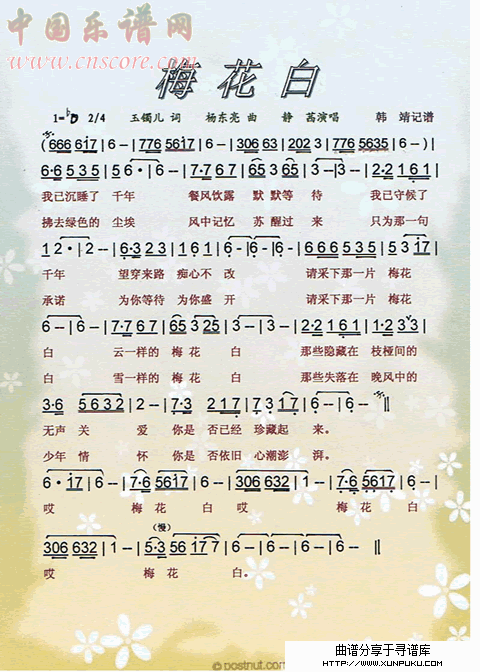 中国乐谱网
www.cnscore.com
梅花白
1=♭D 2/4 玉镯儿 词 杨东亮 曲 静 茜演唱 韩 靖记谱
(666 617|6 --|776 5617|6 --|306 63|202 3|776 5635|6 --)|
6·6 5 3 5|5 6 ·|6 --|7·7 6 7|6 5 6 3|3 --|3 --|2·2 1 6 1|
我已沉睡了 千年 餐风饮露 默默等 待 我已守候了
拂去绿色的 尘埃 风中记忆 苏 醒过 来 只为那一句
1 2 ·|2 --|6·3 2 3|1 6 1|6 --|6 --|6 6 6 5 3 5|5 3 17|
千年 望穿来路 痴心不 改 请采下那一片 梅花
承诺 为你等待 为你盛 开 请采下那一片 梅花
6 --|6 --|7·7 6 7|65 3 25|3 --|3 --|2·2 1 6 1|1·2 33|
白 云一样的 梅 花 白 那些隐藏在 枝桠间的
白 雪一样的 梅 花 白 那些失落在 晚风中的
3·6|5 6 3 2|2 --|7·3|2 1 7|1·7 6 5 7|6 --|6 --|
无声 关 爱 你是 否已经 珍藏起 来。
少年 情 怀 你是 否依旧 心潮澎 湃。
6 · 17|6 --|7·6 5617|6 --|306 632|1 --|7·6 5617|6 --|
哎 梅 花 白 哎 梅 花 白
(慢)
306 632|1 --|5·3 56 17 7|6 --|6 --|6 --|6 --‖
哎 梅 花 白。
曲谱分享于寻谱库
HTTP://WWW.XUNPUKU.COM
© postnut.com